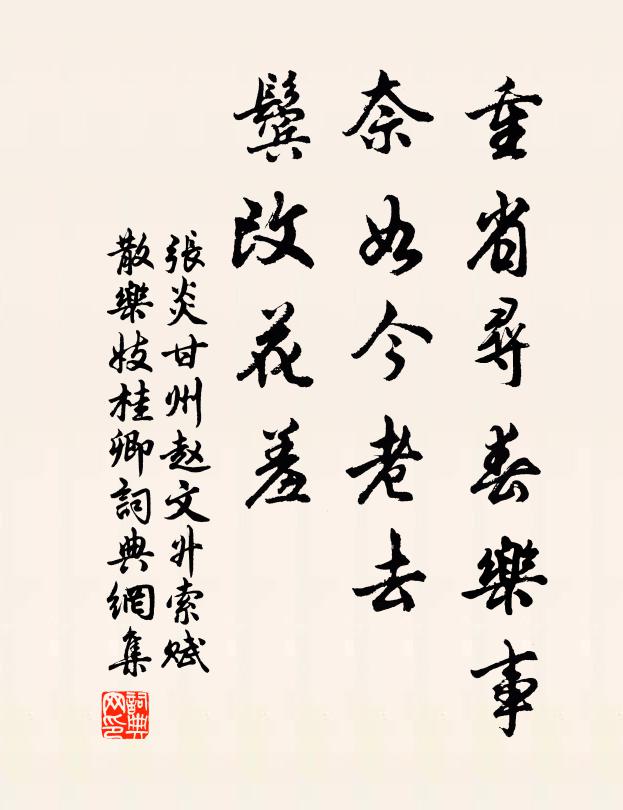 重省尋春樂事
奈如今老去
鬓改花羞
張炎甘州赵文升索赋
散樂妓桂卿詞典網集
詞典
网印